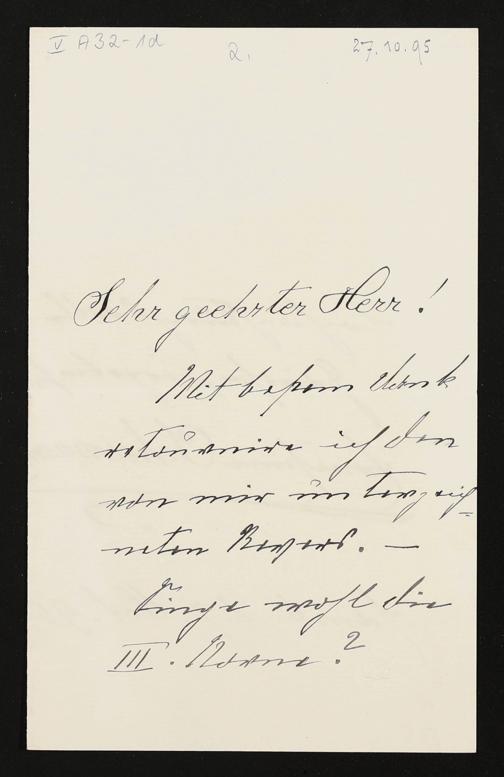 V A32-1d 2. 27.10.95
Sehr geehrter Herr!
Mit bestem Dank
retournire ich den
von mir unterzeich=
neten Revers. —
Singe wohl die
III. Norne?